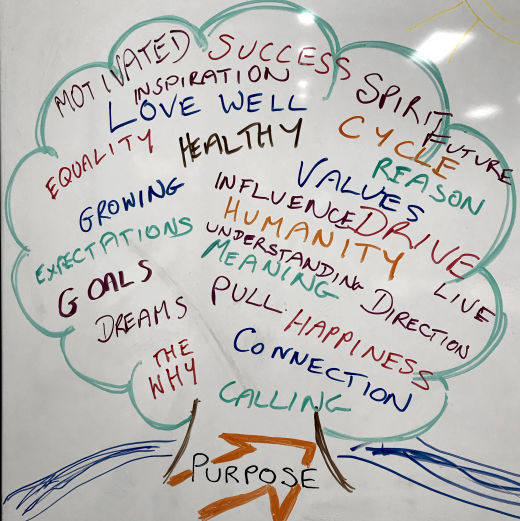 MOTIVATED
SUCCESS
INSPIRATION
SPIRIT
LOVE WELL
FUTURE
EQUALITY
HEALTHY
CYCLE
REASON
VALUES
GROWING
INFLUENCE
DRIVE
HUMANITY
EXPECTATIONS
UNDERSTANDING
MEANING
GOALS
LIVE
DREAMS
PULL
DIRECTION
HAPPINESS
THE
WHY
CONNECTION
CALLING
PURPOSE